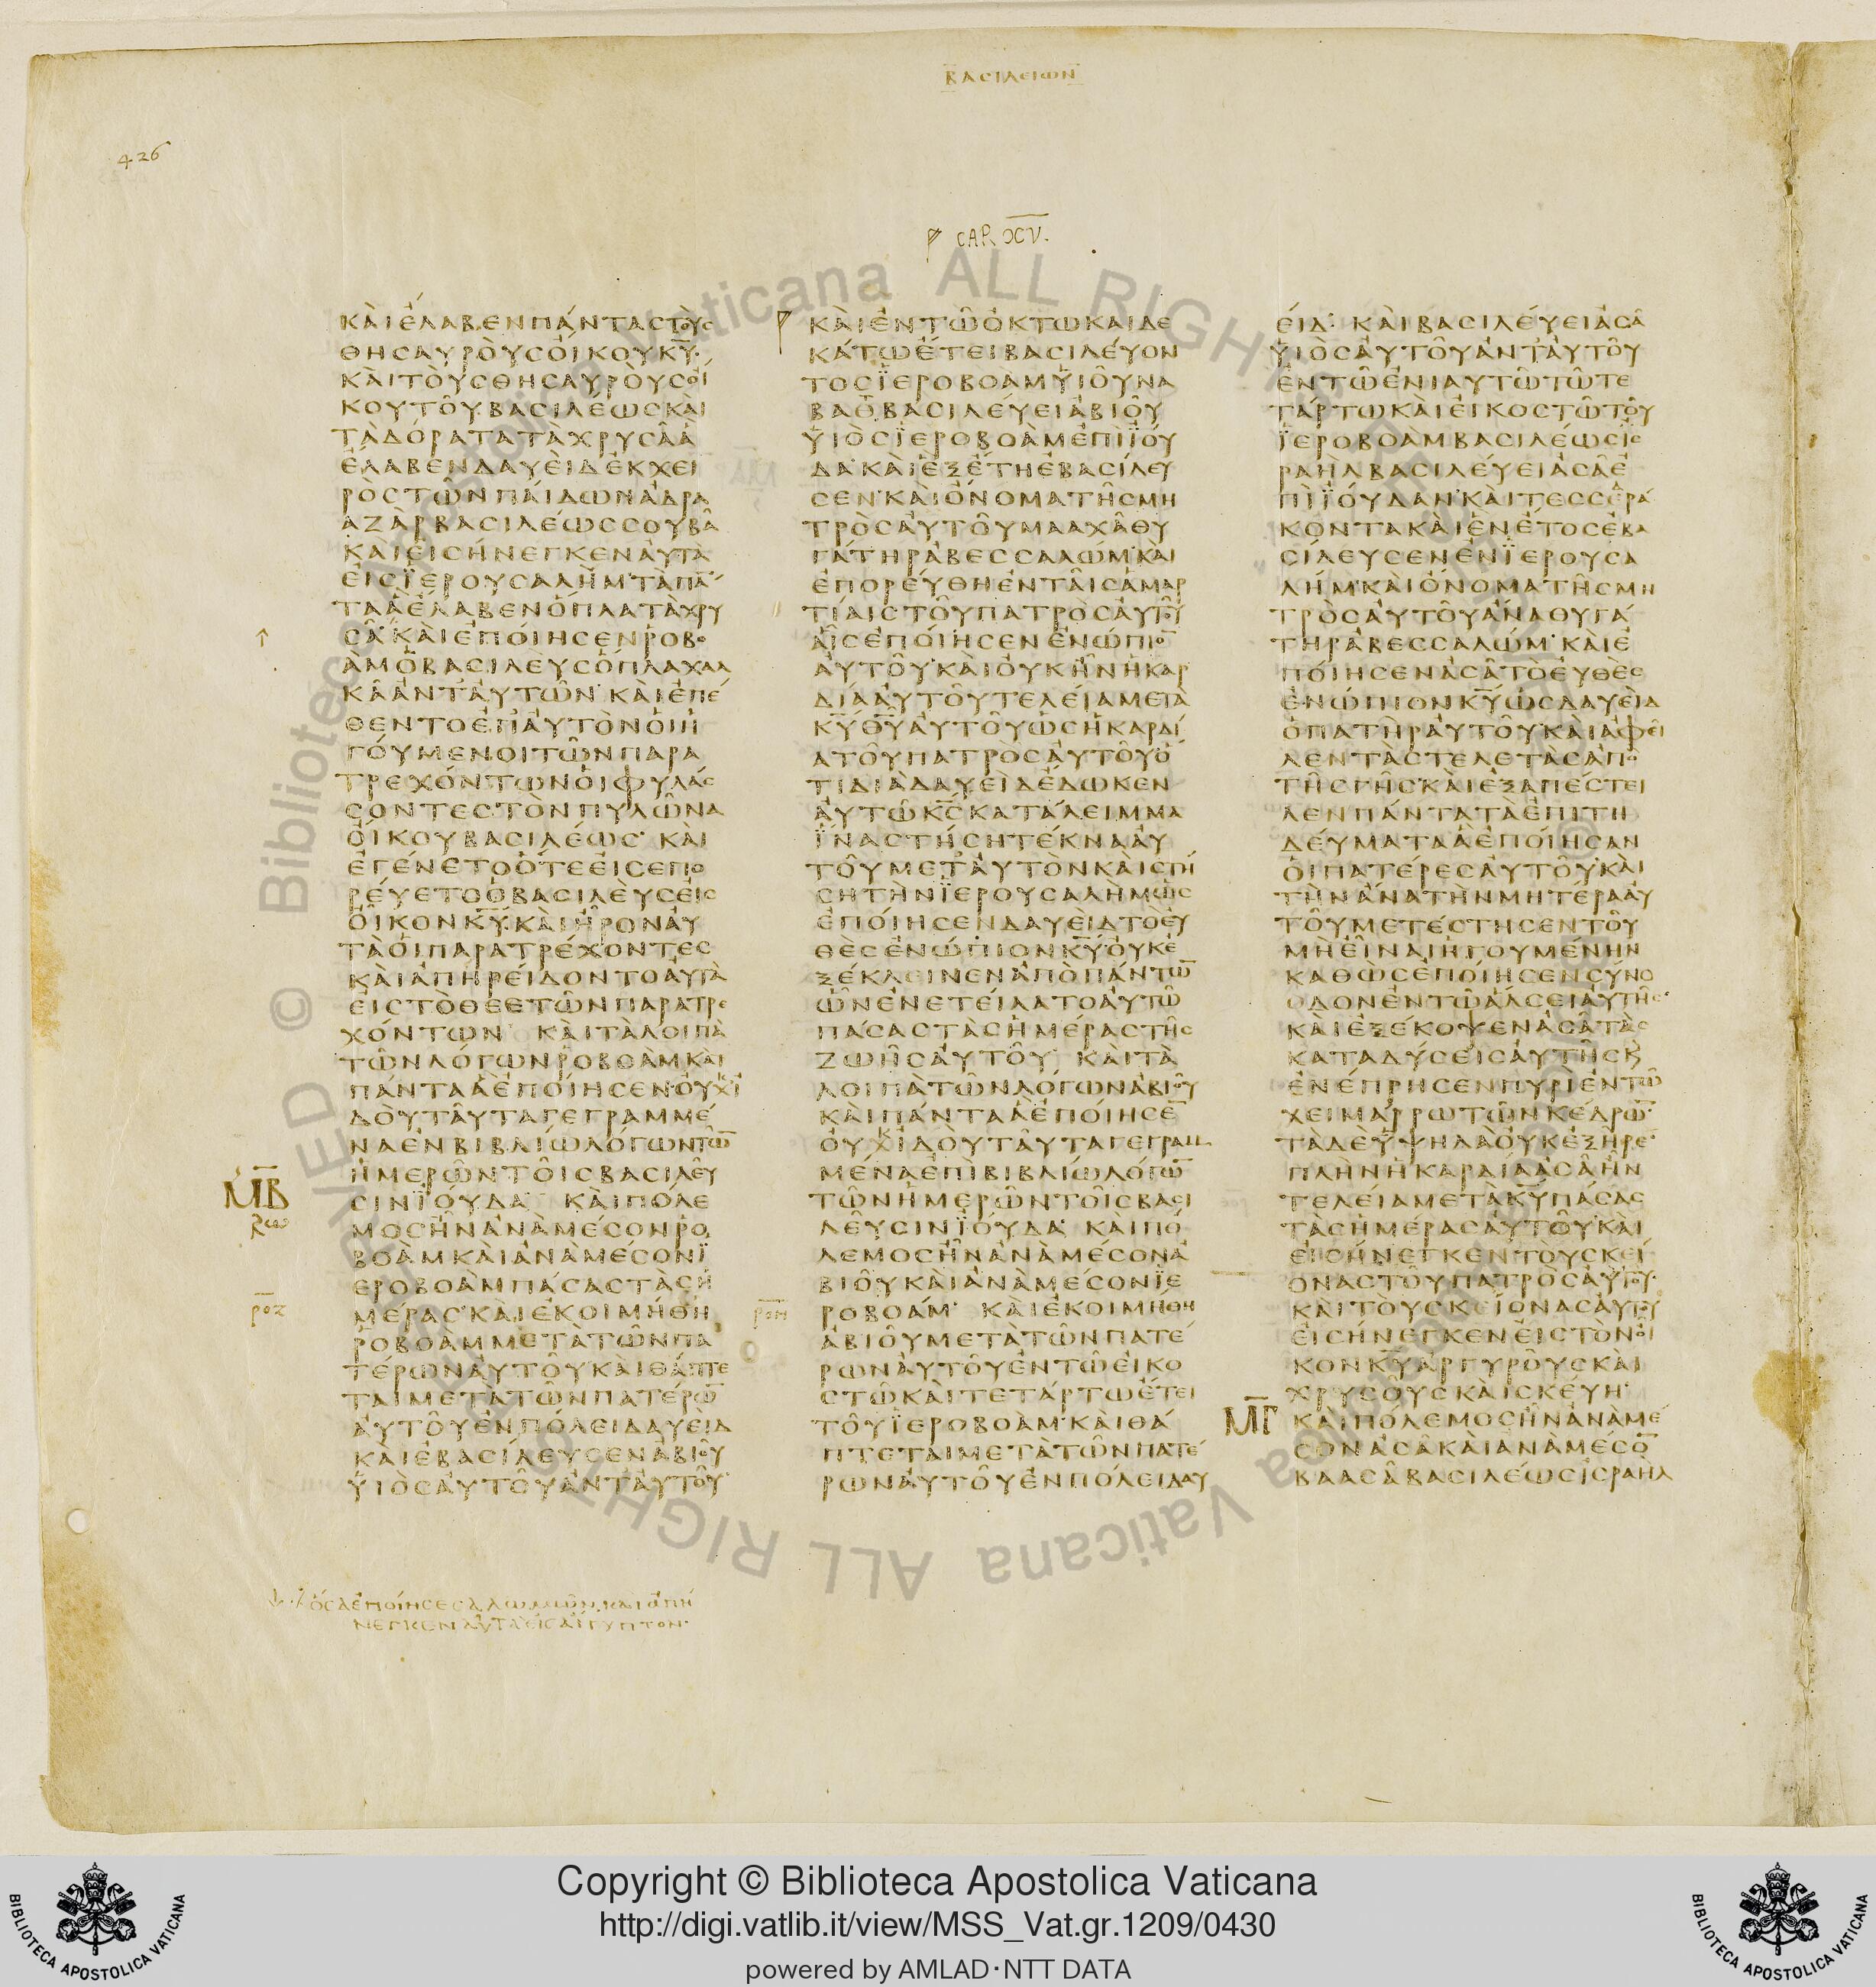 ΒΑϹΙΛΕΙΩΝ
426
CAP. XV.
ΚΑΙΕΛΑΒΕΝΠΑΝΤΑϹΤΟΥϹ
ΘΗϹΑΥΡΟΥϹΟΙΚΟΥΚΥ
ΚΑΙΤΟΥϹΘΗϹΑΥΡΟΥϹΟΙ
ΚΟΥΤΟΥΒΑϹΙΛΕΩϹΚΑΙ
ΤΑΔΟΡΑΤΑΤΑΧΡΥϹΑΑ
ΕΛΑΒΕΝΔΑΥΕΙΔΕΚΧΕΙ
ΡΟϹΤΩΝΠΑΙΔΩΝΑΔΡΑ
ΑΖΑΡΒΑϹΙΛΕΩϹϹΟΥΒΑ
ΚΑΙΕΙϹΗΝΕΓΚΕΝΑΥΤΑ
ΕΙϹΪΕΡΟΥϹΑΛΗΜΤΑΠΑ̅
ΤΑΑΕΛΑΒΕΝΟΠΛΑΤΑΧΡΥ
ϹΑΚΑΙΕΠΟΙΗϹΕΝΡΟΒΟ
ΑΜΟΒΑϹΙΛΕΥϹΟΠΛΑΧΑΛ
ΚΑΑΝΤΑΥΤΩΝΚΑΙΕΠΕ
ΘΕΝΤΟΕΠΑΥΤΟΝΟΙΗ
ΓΟΥΜΕΝΟΙΤΩΝΠΑΡΑ
ΤΡΕΧΟΝΤΩΝΟΙΦΥΛΑϹ
ϹΟΝΤΕϹΤΟΝΠΥΛΩΝΑ
ΟΙΚΟΥΒΑϹΙΛΕΩϹ ΚΑΙ
ΕΓΕΝΕΤΟΟΤΕΕΙϹΕΠΟ
ΡΕΥΕΤΟΟΒΑϹΙΛΕΥϹΕΙϹ
ΟΙΚΟΝΚΥΚΑΙΗΡΟΝΑΥ
ΤΑΟΙΠΑΡΑΤΡΕΧΟΝΤΕϹ
ΚΑΙΑΠΗΡΕΙΔΟΝΤΟΑΥΤΑ
ΕΙϹΤΟΘΕΕΤΩΝΠΑΡΑΤΡΕ
ΧΟΝΤΩΝ ΚΑΙΤΑΛΟΙΠΑ
ΤΩΝΛΟΓΩΝΡΟΒΟΑΜΚΑΙ
ΠΑΝΤΑΑΕΠΟΙΗϹΕΝΟΥΧΙ
ΔΟΥΤΑΥΤΑΓΕΓΡΑΜΜΕ
ΝΑΕΝΒΙΒΛΙΩΛΟΓΩΝΤΩ̅
ΗΜΕΡΩΝΤΟΙϹΒΑϹΙΛΕΥ
ΜΒ ϹΙΝΪΟΥΔΑ ΚΑΙΠΟΛΕ
ΜΟϹΗΝΑΝΑΜΕϹΟΝΡΟ
ΒΟΑΜΚΑΙΑΝΑΜΕϹΟΝΪ
ΕΡΟΒΟΑΜΠΑϹΑϹΤΑϹΗ
ροζ ΜΕΡΑϹΚΑΙΕΚΟΙΜΗΘΗ
ΡΟΒΟΑΜΜΕΤΑΤΩΝΠΑ
ΤΕΡΩΝΑΥΤΟΥΚΑΙΘΑΠΤΕ
ΤΑΙΜΕΤΑΤΩΝΠΑΤΕΡΩ̅
ΑΥΤΟΥΕΝΠΟΛΕΙΔΑΥΕΙΔ
ΚΑΙΕΒΑϹΙΛΕΥϹΕΝΑΒΙΟΥ
ΥΙΟϹΑΥΤΟΥΑΝΤΑΥΤΟΥ
ΟϹΑΕΠΟΙΗϹΕϹΑΛΩΜΩΝΚΑΙΑΠΗ
ΝΕΓΚΕΝΑΥΤΑΕΙϹΑΙΓΥΠΤΟΝ
ΚΑΙΕΝΤΩΟΚΤΩΚΑΙΔΕ
ΚΑΤΩΕΤΕΙΒΑϹΙΛΕΥΟΝ
ΤΟϹΪΕΡΟΒΟΑΜΥΙΟΥΝΑ
ΒΑΘΒΑϹΙΛΕΥΕΙΑΒΙΟΥ
ΥΙΟϹΪΕΡΟΒΟΑΜΕΠΙΪΟΥ
ΔΑΚΑΙΕΞΕΤΗΕΒΑϹΙΛΕΥ
ϹΕΝΚΑΙΟΝΟΜΑΤΗϹΜΗ
ΤΡΟϹΑΥΤΟΥΜΑΑΧΑΘΥ
ΓΑΤΗΡΑΒΕϹϹΑΛΩΜΚΑΙ
ΕΠΟΡΕΥΘΗΕΝΤΑΙϹΑΜΑΡ
ΤΙΑΙϹΤΟΥΠΑΤΡΟϹΑΥΤΟΥ
ΑΙϹΕΠΟΙΗϹΕΝΕΝΩΠΙΟ̅
ΑΥΤΟΥΚΑΙΟΥΚΗΝΗΚΑΡ
ΔΙΑΑΥΤΟΥΤΕΛΕΙΑΜΕΤΑ
ΚΥΘΥΑΥΤΟΥΩϹΗΚΑΡΔΙ
ΑΤΟΥΠΑΤΡΟϹΑΥΤΟΥΟ
ΤΙΔΙΑΔΑΥΕΙΔΕΔΩΚΕΝ
ΑΥΤΩΚϹΚΑΤΑΛΕΙΜΜΑ
ΪΝΑϹΤΗϹΗΤΕΚΝΑΑΥ
ΤΟΥΜΕΤΑΥΤΟΝΚΑΙϹΤΗ
ϹΗΤΗΝΪΕΡΟΥϹΑΛΗΜΩϹ
ΕΠΟΙΗϹΕΝΔΑΥΕΙΔΤΟΕΥ
ΘΕϹΕΝΩΠΙΟΝΚΥΟΥΚΕ
ΞΕΚΛΕΙΝΕΝΑΠΟΠΑΝΤΩ̅
ΩΝΕΝΕΤΕΙΛΑΤΟΑΥΤΩ
ΠΑϹΑϹΤΑϹΗΜΕΡΑϹΤΗϹ
ΖΩΗϹΑΥΤΟΥ ΚΑΙΤΑ
ΛΟΙΠΑΤΩΝΛΟΓΩΝΑΒΙΟΥ
ΚΑΙΠΑΝΤΑΑΕΠΟΙΗϹΕ̅
ΟΥΧΙΔΟΥΤΑΥΤΑΓΕΓΡΑΜ
ΜΕΝΑΕΠΙΒΙΒΛΙΩΛΟΓΩ̅
ΤΩΝΗΜΕΡΩΝΤΟΙϹΒΑϹΙ
ΛΕΥϹΙΝΪΟΥΔΑ ΚΑΙΠΟ
ΛΕΜΟϹΗΝΑΝΑΜΕϹΟΝΑ
ΒΙΟΥΚΑΙΑΝΑΜΕϹΟΝΪΕ
ροη ΡΟΒΟΑΜ ΚΑΙΕΚΟΙΜΗΘΗ
ΑΒΙΟΥΜΕΤΑΤΩΝΠΑΤΕ
ΡΩΝΑΥΤΟΥΕΝΤΩΕΙΚΟ
ϹΤΩΚΑΙΤΕΤΑΡΤΩΕΤΕΙ
ΤΟΥΪΕΡΟΒΟΑΜΚΑΙΘΑ
ΠΤΕΤΑΙΜΕΤΑΤΩΝΠΑΤΕ
ΡΩΝΑΥΤΟΥΕΝΠΟΛΕΙΔΑΥ
ΕΙΔ ΚΑΙΒΑϹΙΛΕΥΕΙΑϹΑ
ΥΙΟϹΑΥΤΟΥΑΝΤΑΥΤΟΥ
ΕΝΤΩΕΝΙΑΥΤΩΤΩΤΕ
ΤΑΡΤΩΚΑΙΕΙΚΟϹΤΩΤΟΥ
ΪΕΡΟΒΟΑΜΒΑϹΙΛΕΩϹΙϹ
ΡΑΗΛΒΑϹΙΛΕΥΕΙΑϹΑΕ
ΠΙΪΟΥΔΑΝΚΑΙΤΕϹϹΕΡΑ
ΚΟΝΤΑΚΑΙΕΝΕΤΟϹΕΒΑ
ϹΙΛΕΥϹΕΝΕΝΪΕΡΟΥϹΑ
ΛΗΜΚΑΙΟΝΟΜΑΤΗϹΜΗ
ΤΡΟϹΑΥΤΟΥΑΝΑΘΥΓΑ
ΤΗΡΑΒΕϹϹΑΛΩΜ ΚΑΙΕ
ΠΟΙΗϹΕΝΑϹΑΤΟΕΥΘΕϹ
ΕΝΩΠΙΟΝΚΥΩϹΔΑΥΕΙΔ
ΟΠΑΤΗΡΑΥΤΟΥΚΑΙΑΦΕΙ
ΛΕΝΤΑϹΤΕΛΕΤΑϹΑΠΟ
ΤΗϹΓΗϹΚΑΙΕΞΑΠΕϹΤΕΙ
ΛΕΝΠΑΝΤΑΤΑΕΠΙΤΗ
ΔΕΥΜΑΤΑΑΕΠΟΙΗϹΑΝ
ΟΙΠΑΤΕΡΕϹΑΥΤΟΥΚΑΙ
ΤΗΝΑΝΑΤΗΝΜΗΤΕΡΑΑΥ
ΤΟΥΜΕΤΕϹΤΗϹΕΝΤΟΥ
ΜΗΕΙΝΑΙΗΓΟΥΜΕΝΗΝ
ΚΑΘΩϹΕΠΟΙΗϹΕΝϹΥΝΟ
ΟΔΟΝΕΝΤΩΑΛϹΕΙΑΥΤΗϹ
ΚΑΙΕΞΕΚΟΨΕΝΑϹΑΤΑϹ
ΚΑΤΑΔΥϹΕΙϹΑΥΤΗϹΚ
ΕΝΕΠΡΗϹΕΝΠΥΡΙΕΝΤΩ
ΧΕΙΜΑΡΡΩΤΩΝΚΕΔΡΩ̅
ΤΑΔΕΥΨΗΛΑΟΥΚΕΞΗΡΕ
ΠΛΗΝΗΚΑΡΔΙΑΑϹΑΗΝ
ΤΕΛΕΙΑΜΕΤΑΚΥΠΑϹΑϹ
ΤΑϹΗΜΕΡΑϹΑΥΤΟΥΚΑΙ
ΕΙϹΗΝΕΓΚΕΝΤΟΥϹΚΕΙ
ΟΝΑϹΤΟΥΠΑΤΡΟϹΑΥΤΟΥ
ΚΑΙΤΟΥϹΚΕΙΟΝΑϹΑΥΤΟΥ
ΕΙϹΗΝΕΓΚΕΝΕΙϹΤΟΝΟΙ
ΚΟΝΚΥΑΡΓΥΡΟΥϹΚΑΙ
ΧΡΥϹΟΥϹΚΑΙϹΚΕΥΗ
ΜΓ ΚΑΙΠΟΛΕΜΟϹΗΝΑΝΑΜΕ
ϹΟΝΑϹΑΚΑΙΑΝΑΜΕϹΟ̅
ΒΑΑϹΑΒΑϹΙΛΕΩϹΙϹΡΑΗΛ
© Biblioteca Apostolica Vaticana ALL RIGHTS RESERVED
© Biblioteca Apostolica Vaticana ALL RIGHTS RESERVED
BIBLIOTECA APOSTOLICA VATICANA
Copyright © Biblioteca Apostolica Vaticana
http://digi.vatlib.it/view/MSS_Vat.gr.1209/0430
powered by AMLAD·NTT DATA
BIBLIOTECA APOSTOLICA VATICANA